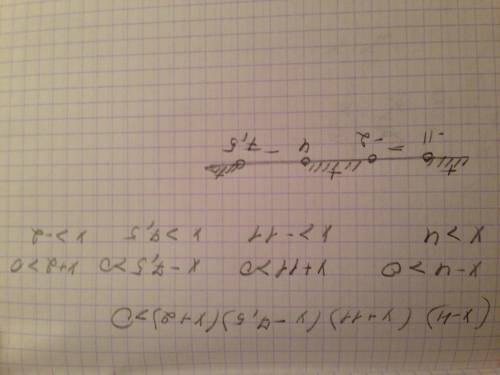 (x-4) (x+11) (x-7,5)(x+2)>0
x-4>0 x+11>0 x-7,5>0 x+2>0
x>4 x>-11 x>7,5 x>-2
+ - + - +
-11 -2 4 7,5